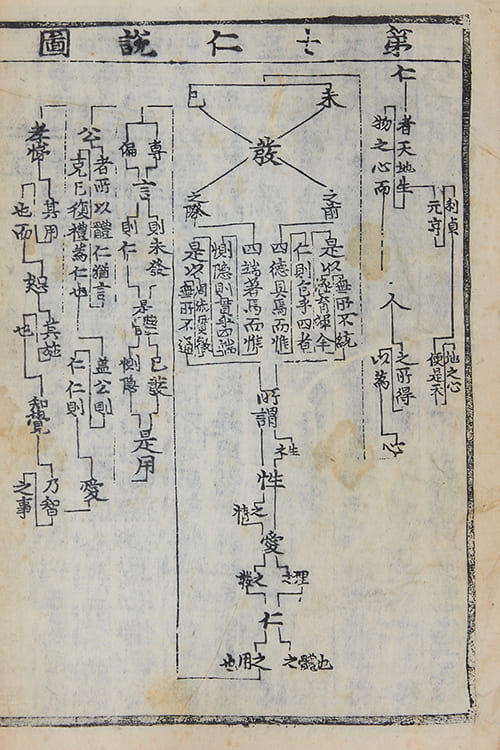 第七仁說圖
仁
者天地生
物之心而
元亨
利貞
便是天
地之心
人
之所得
以爲
心
未
已
發
之前
四德具焉而惟
仁則包乎四者
是以涵育渾全
無所不統
之際
四端著焉而惟
惻隱則貫乎四端
是以周流貫徹
無所不通
所謂
生之
性
之情
愛
之理
之發
仁
之體也
之用也
專
偏
言
則未發
則仁
是體
已發
惻隱
是用
公
者所以體仁猶言
克己復禮爲仁也
蓋公則
仁仁則
愛
孝悌
其用
也而
恕
其施
也
知覺
乃智
之事